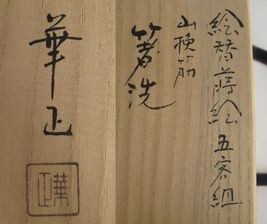 絵替蒔絵 五客組
山換筋
箸洗
華正